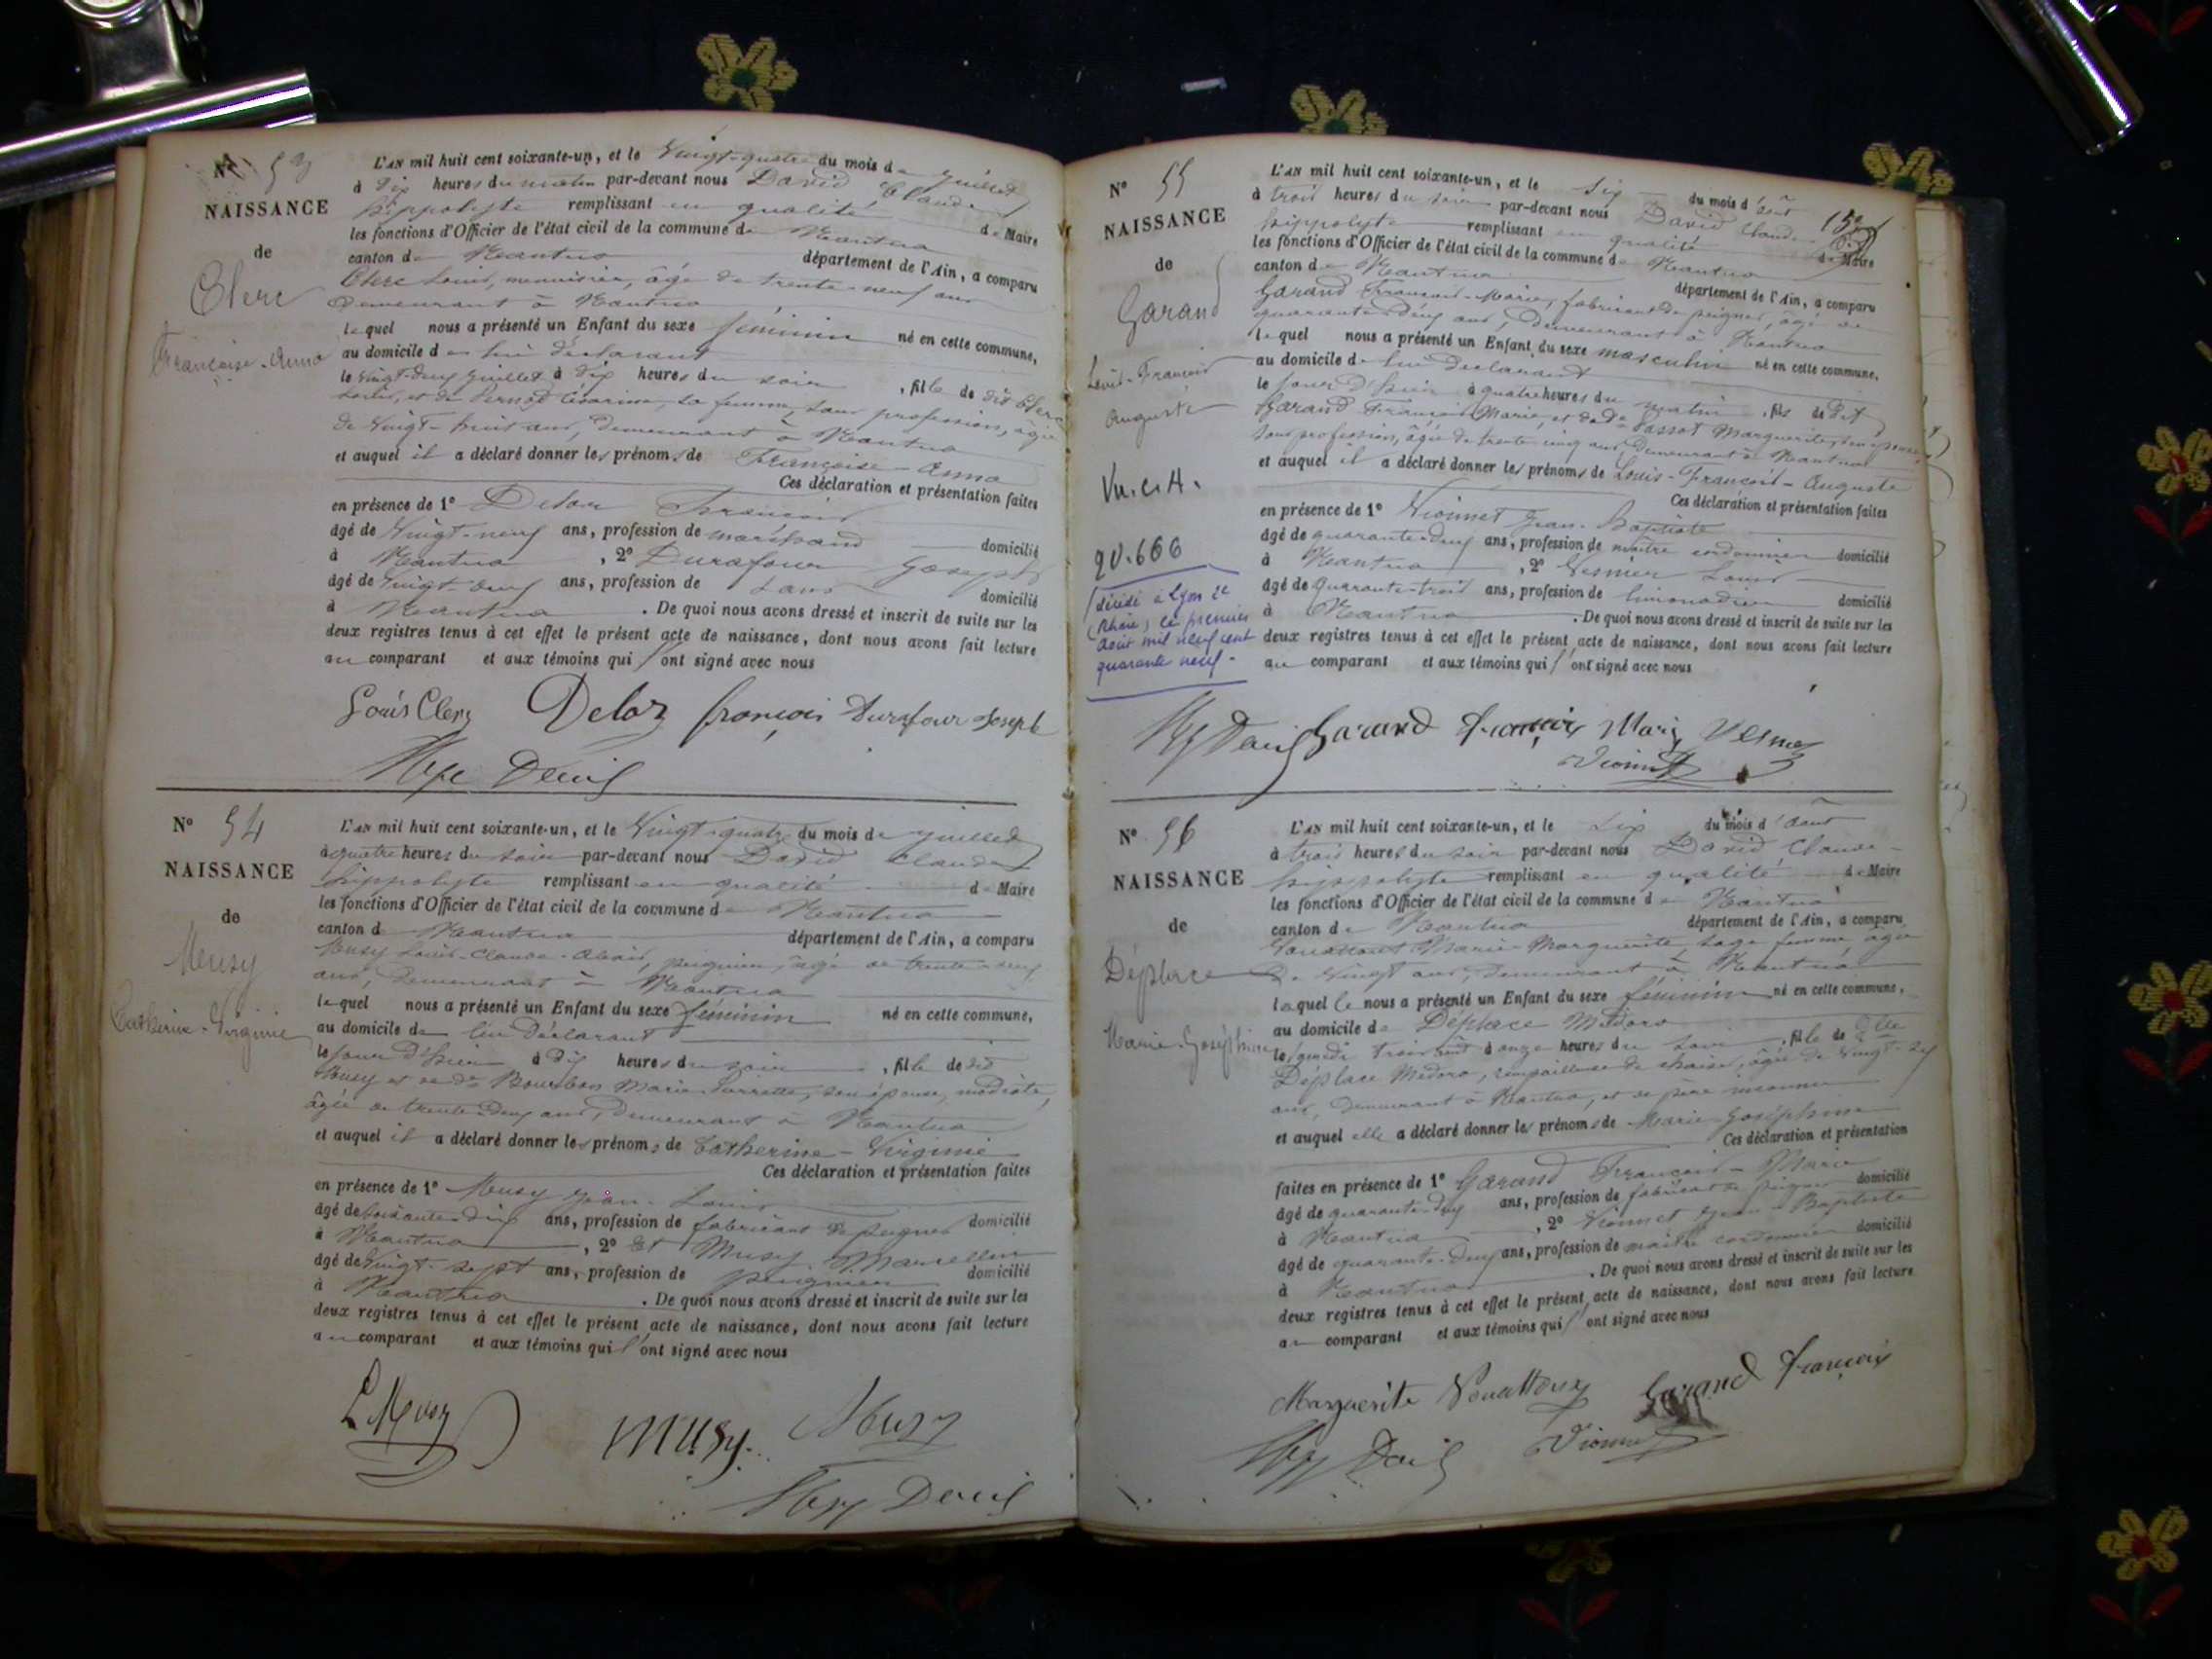 N° 53
NAISSANCE
de
Clerc
Françoise-Anna
L'AN mil huit cent soixante-un, et le Vingt-quatre du mois de Juillet
à Dix heures du matin par-devant nous David Claude
hippolyte remplissant en qualité de Maire
les fonctions d'Officier de l'état civil de la commune de Nantua
canton de Nantua département de l'Ain, a comparu
Clerc Louis, menuisier, âgé de trente-neuf ans
demeurant à Nantua
lequel nous a présenté un Enfant du sexe féminin né en cette commune,
au domicile de lui déclarant
le vingt-deux Juillet à Dix heures du soir, fille de dit Clerc
Louis, et de Césarine, sa femme, sans profession, âgée
de Vingt-huit ans, demeurant à Nantua
et auquel il a déclaré donner les prénoms de Françoise-Anna
Ces déclaration et présentation faites
en présence de 1° Deloz François
âgé de Vingt-neuf ans, profession de marchand domicilié
à Nantua, 2° Durafour Joseph
âgé de Vingt-deux ans, profession de sans domicilié
à Nantua. De quoi nous avons dressé et inscrit de suite sur les
deux registres tenus à cet effet le présent acte de naissance, dont nous avons fait lecture
au comparant et aux témoins qui l'ont signé avec nous
Louis Clerc Deloz françois Durafour Joseph
Hyp David
N° 54
NAISSANCE
de
Musy
Catherine-Virginie
L'AN mil huit cent soixante-un, et le Vingt-quatre du mois de Juillet
à quatre heures du soir par-devant nous David Claude
hippolyte remplissant en qualité de Maire
les fonctions d'Officier de l'état civil de la commune de Nantua
canton de Nantua département de l'Ain, a comparu
Musy Louis-Claude-Alexis, peignier, âgé de trente-neuf
ans, demeurant à Nantua
lequel nous a présenté un Enfant du sexe féminin né en cette commune,
au domicile de lui Déclarant
le jour d'hier à Dix heures du soir, fille de dit
Musy et de de Bourbon Marie-Pierrette, son épouse, modiste,
âgée de trente-deux ans, demeurant à Nantua
et auquel il a déclaré donner les prénoms de Catherine-Virginie
Ces déclaration et présentation faites
en présence de 1° Musy Jean-Louis
âgé de soixante-dix ans, profession de fabricant de peignes domicilié
à Nantua, 2° et Musy Marcellin
âgé de Vingt-sept ans, profession de peignier domicilié
à Nantua. De quoi nous avons dressé et inscrit de suite sur les
deux registres tenus à cet effet le présent acte de naissance, dont nous avons fait lecture
au comparant et aux témoins qui l'ont signé avec nous
L Musy Musy. Musy
Hyp David
N° 55
NAISSANCE
de
Garand
Louis-François
Auguste
Vu.c.A.
90.666
décédé à Lyon 2e
(Rhône) le premier
août mil neuf cent
quarante neuf.
L'AN mil huit cent soixante-un, et le Six du mois d'août
à trois heures du soir par-devant nous David Claude
hippolyte remplissant en qualité de Maire
les fonctions d'Officier de l'état civil de la commune de Nantua
canton de Nantua département de l'Ain, a comparu
Garand François-Marie, fabricant de peignes, âgé de
quarante-deux ans, demeurant à Nantua
lequel nous a présenté un Enfant du sexe masculin né en cette commune,
au domicile de lui déclarant
le jour d'hier à quatre heures du matin, fils de dit
Garand François-Marie, et de de Passot Marguerite, son épouse,
sans profession, âgée de trente cinq ans, demeurant à Nantua
et auquel il a déclaré donner les prénoms de Louis-François-Auguste
Ces déclaration et présentation faites
en présence de 1° Vionnet Jean-Baptiste
âgé de quarante-deux ans, profession de maître cordonnier domicilié
à Nantua, 2° Vesnier Louis
âgé de Quarante-trois ans, profession de limonadier domicilié
à Nantua. De quoi nous avons dressé et inscrit de suite sur les
deux registres tenus à cet effet le présent acte de naissance, dont nous avons fait lecture
au comparant et aux témoins qui l'ont signé avec nous
Hyp David Garand françois Marie
Vionnet
N° 56
NAISSANCE
de
Déplace
Marie-Joséphine
L'AN mil huit cent soixante-un, et le Six du mois d'août
à trois heures du soir par-devant nous David Claude
hippolyte remplissant en qualité de Maire
les fonctions d'Officier de l'état civil de la commune de Nantua
canton de Nantua département de l'Ain, a comparu
Marie-Marguerite, sage femme, âgée
de Vingt ans, demeurant à Nantua
laquelle nous a présenté un Enfant du sexe féminin né en cette commune,
au domicile de Déplace Médora
le samedi trois août à onze heures du soir, fille de Dlle
Déplace Médora, rempailleuse de chaises, âgée de Vingt-six
ans, demeurant à Nantua, et de père inconnu
et auquel elle a déclaré donner les prénoms de Marie-Joséphine
Ces déclaration et présentation
faites en présence de 1° Garand François-Marie
âgé de quarante-deux ans, profession de fabricant de peignes domicilié
à Nantua, 2° Vionnet Jean-Baptiste
âgé de quarante-deux ans, profession de maître cordonnier domicilié
à Nantua. De quoi nous avons dressé et inscrit de suite sur les
deux registres tenus à cet effet le présent acte de naissance, dont nous avons fait lecture
au comparant et aux témoins qui l'ont signé avec nous
Marguerite Garand françois
Hyp David Vionnet